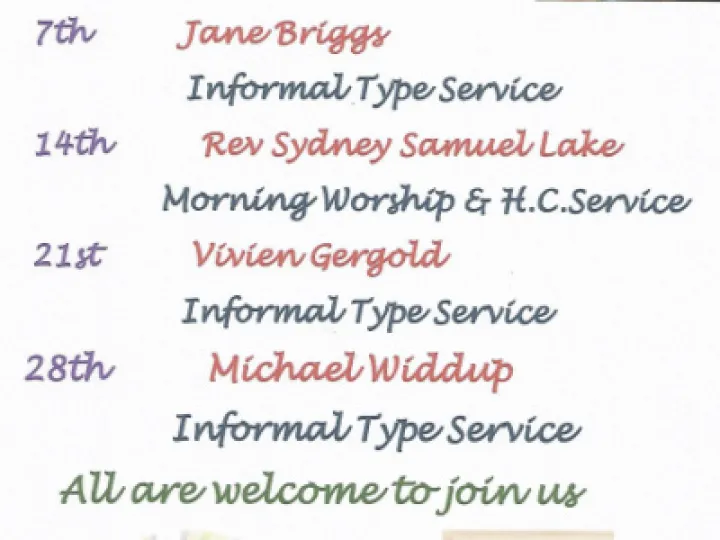 7th Jane Briggs
Informal Type Service
14th Rev Sydney Samuel Lake
Morning Worship & H.C.Service
21st Vivien Gergold
Informal Type Service
28th Michael Widdup
Informal Type Service
All are welcome to join us